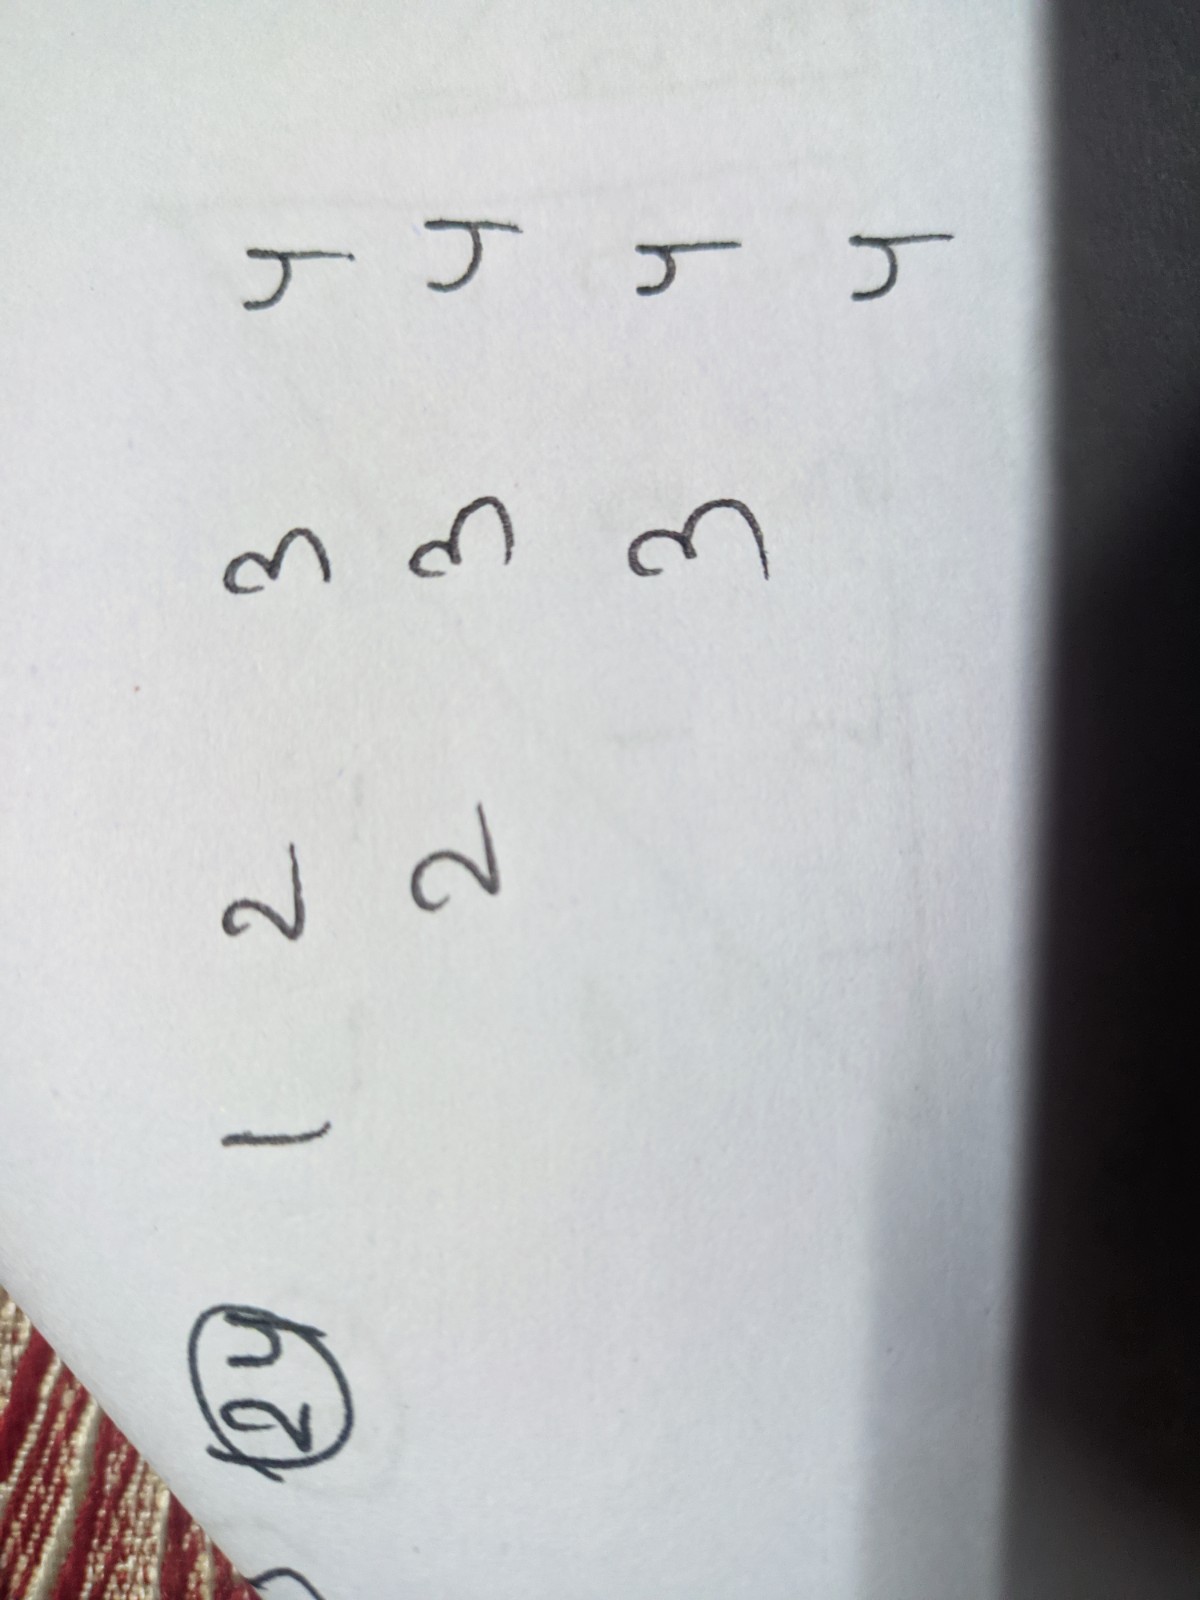 24 1 2 3 4
2 3 4
3 4
4